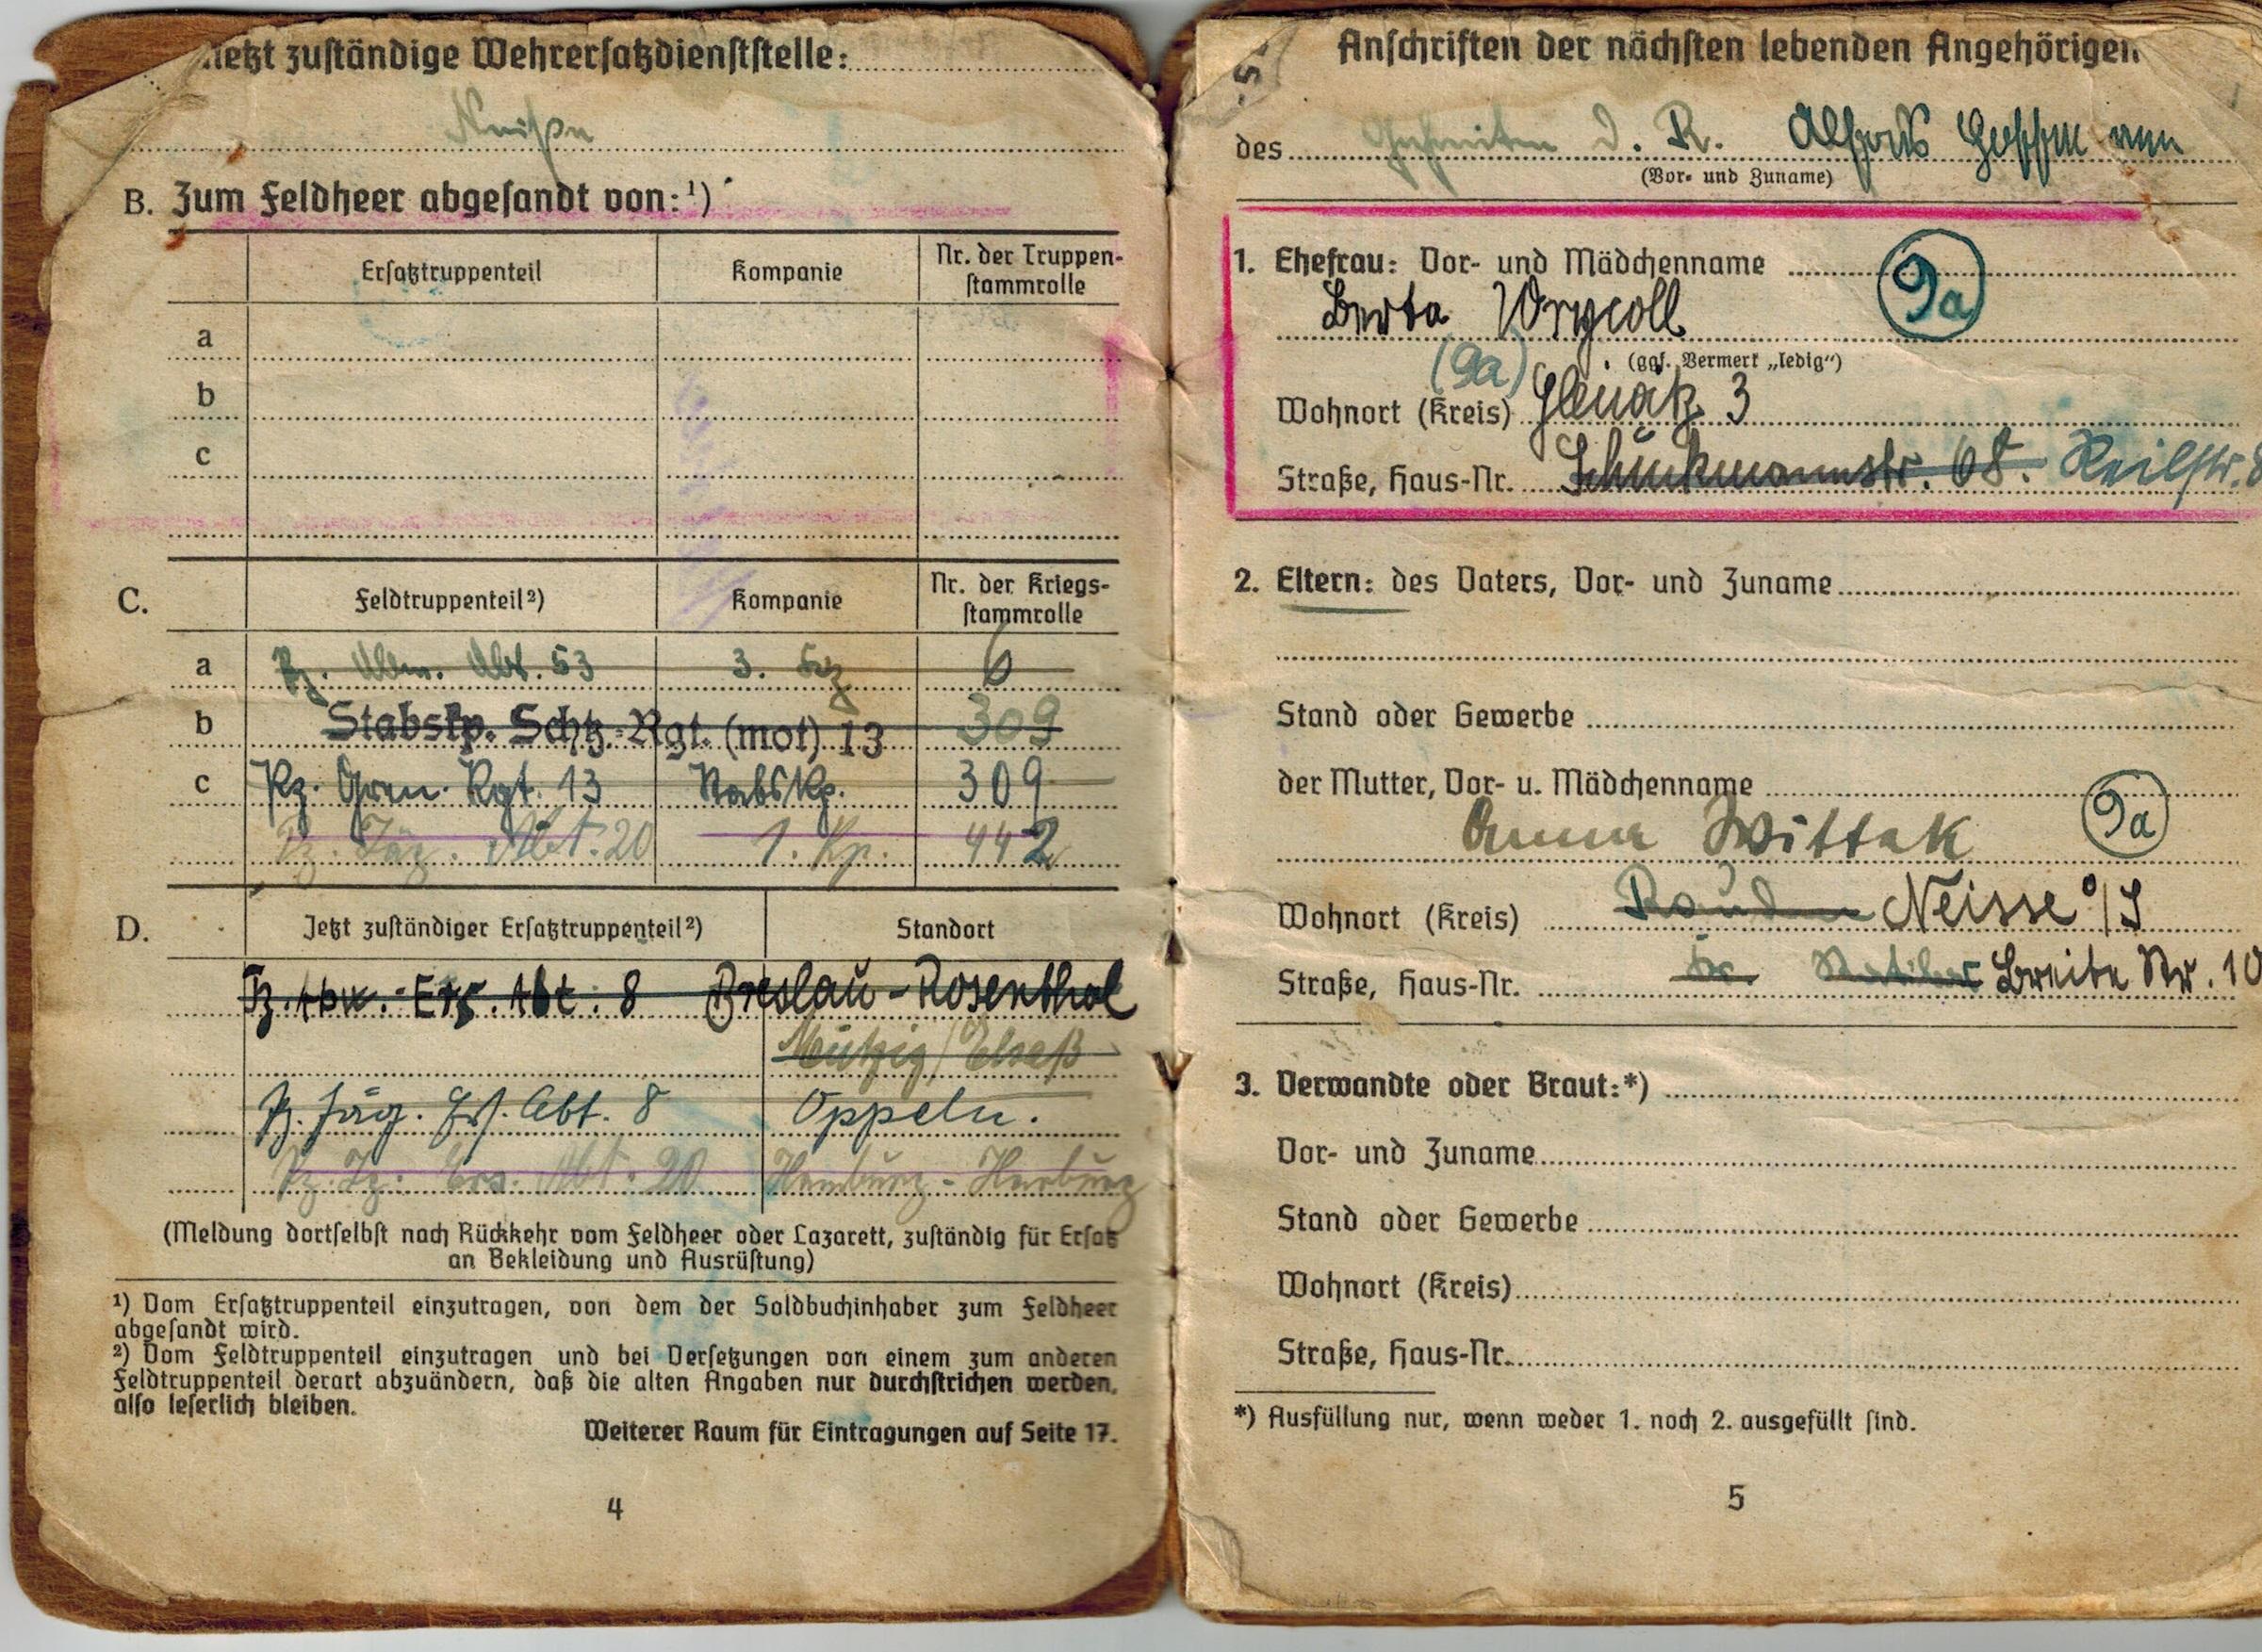 Jetzt zuständige Wehrersatzdienststelle:
Neiße
B. Zum Feldheer abgesandt von:¹)
Ersatztruppenteil Kompanie Nr. der Truppen-
stammrolle
a
b
c
C. Feldtruppenteil²) Kompanie Nr. der Kriegs-
stammrolle
a Pz. Abw. Abt. 53 3. 6
b Stabskp. Schtz. Rgt. (mot) 13 309
c Pz. Gren. Rgt. 13 Stabskp. 309
Pz. Jäg. Abt. 20 1. Kp. 442
D. Jetzt zuständiger Ersatztruppenteil²) Standort
Pz. Abw. - Ers. Abt. 8 Breslau - Rosenthal
Mutzig / Elsaß
Pz. Jäg. Ers. Abt. 8 Oppeln.
Pz. Jg. Ers. Abt. 20 Hamburg - Harburg
(Meldung dortselbst nach Rückkehr vom Feldheer oder Lazarett, zuständig für Ersatz
an Bekleidung und Ausrüstung)
¹) Vom Ersatztruppenteil einzutragen, von dem der Soldbuchinhaber zum Feldheer
abgesandt wird.
²) Vom Feldtruppenteil einzutragen und bei Versetzungen von einem zum anderen
Feldtruppenteil derart abzuändern, daß die alten Angaben nur durchstrichen werden,
also leserlich bleiben.
Weiterer Raum für Eintragungen auf Seite 17.
4
Anschriften der nächsten lebenden Angehörigen
des Gefreiten d. R. Alfons
(Vor- und Zuname)
1. Ehefrau: Vor- und Mädchenname 9a
Berta
(9a) (ggf. Vermerk „ledig“)
Wohnort (Kreis) 3
Straße, Haus-Nr. Schuckmannstr. 68. Reilstr. 8
2. Eltern: des Vaters, Vor- und Zuname
Stand oder Gewerbe
der Mutter, Vor- u. Mädchenname
Anna Wittek 9a
Wohnort (Kreis) Neisse O/S
Straße, Haus-Nr. Kr. Ratibor Breite Str. 10
3. Verwandte oder Braut:*)
Vor- und Zuname
Stand oder Gewerbe
Wohnort (Kreis)
Straße, Haus-Nr.
*) Ausfüllung nur, wenn weder 1. noch 2. ausgefüllt sind.
5